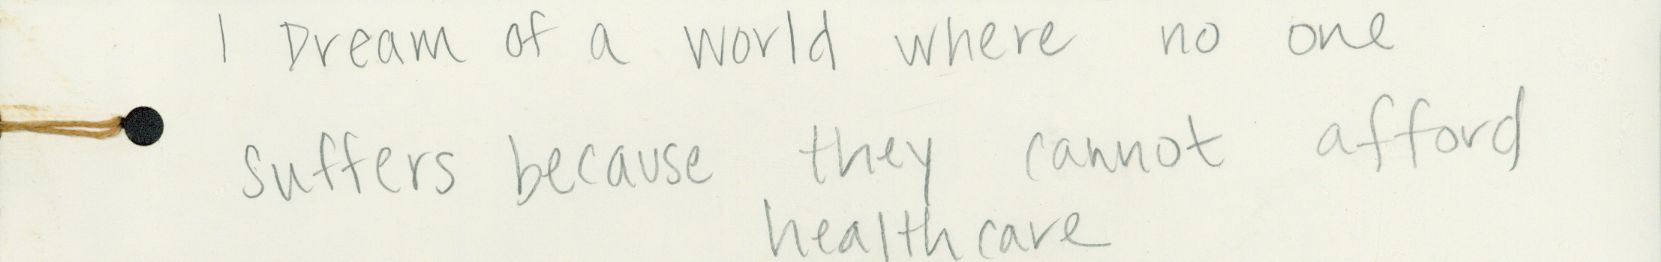 I Dream of a world where no one
suffers because they cannot afford
healthcare